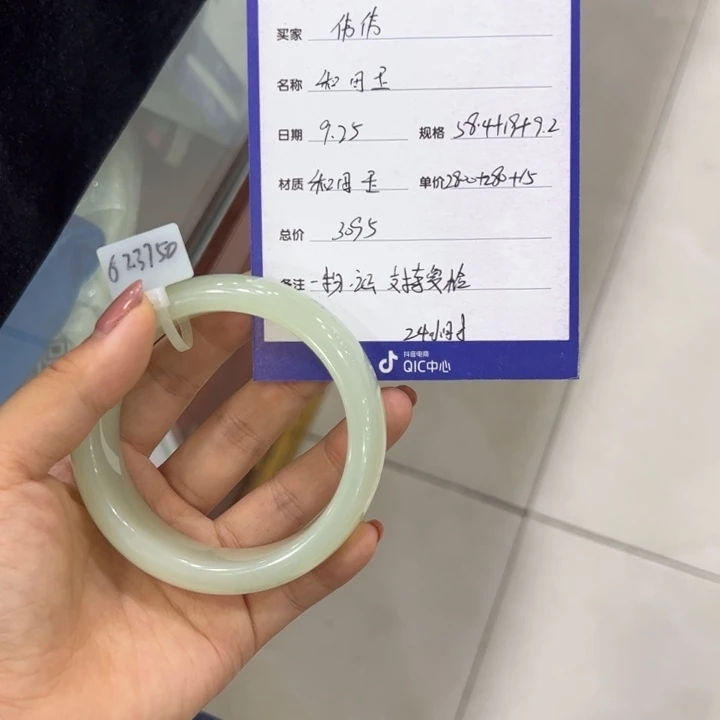 买家 伟伟
名称 和田玉
日期 9.25 规格 58.4+13+9.2
材质 和田玉 单价 2800+280+15
总价 3095
备注 一物一证 支持复检
24小时
抖音电商
QIC中心
623750